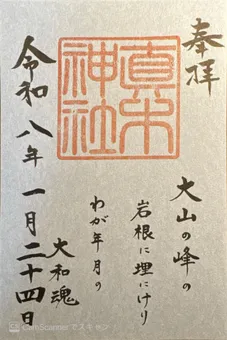 奉拝
真木
神社
大山の峰の
岩根に埋にけり
わが年月の
大和魂
令和八年一月二十四日
CS CamScanner でスキャン